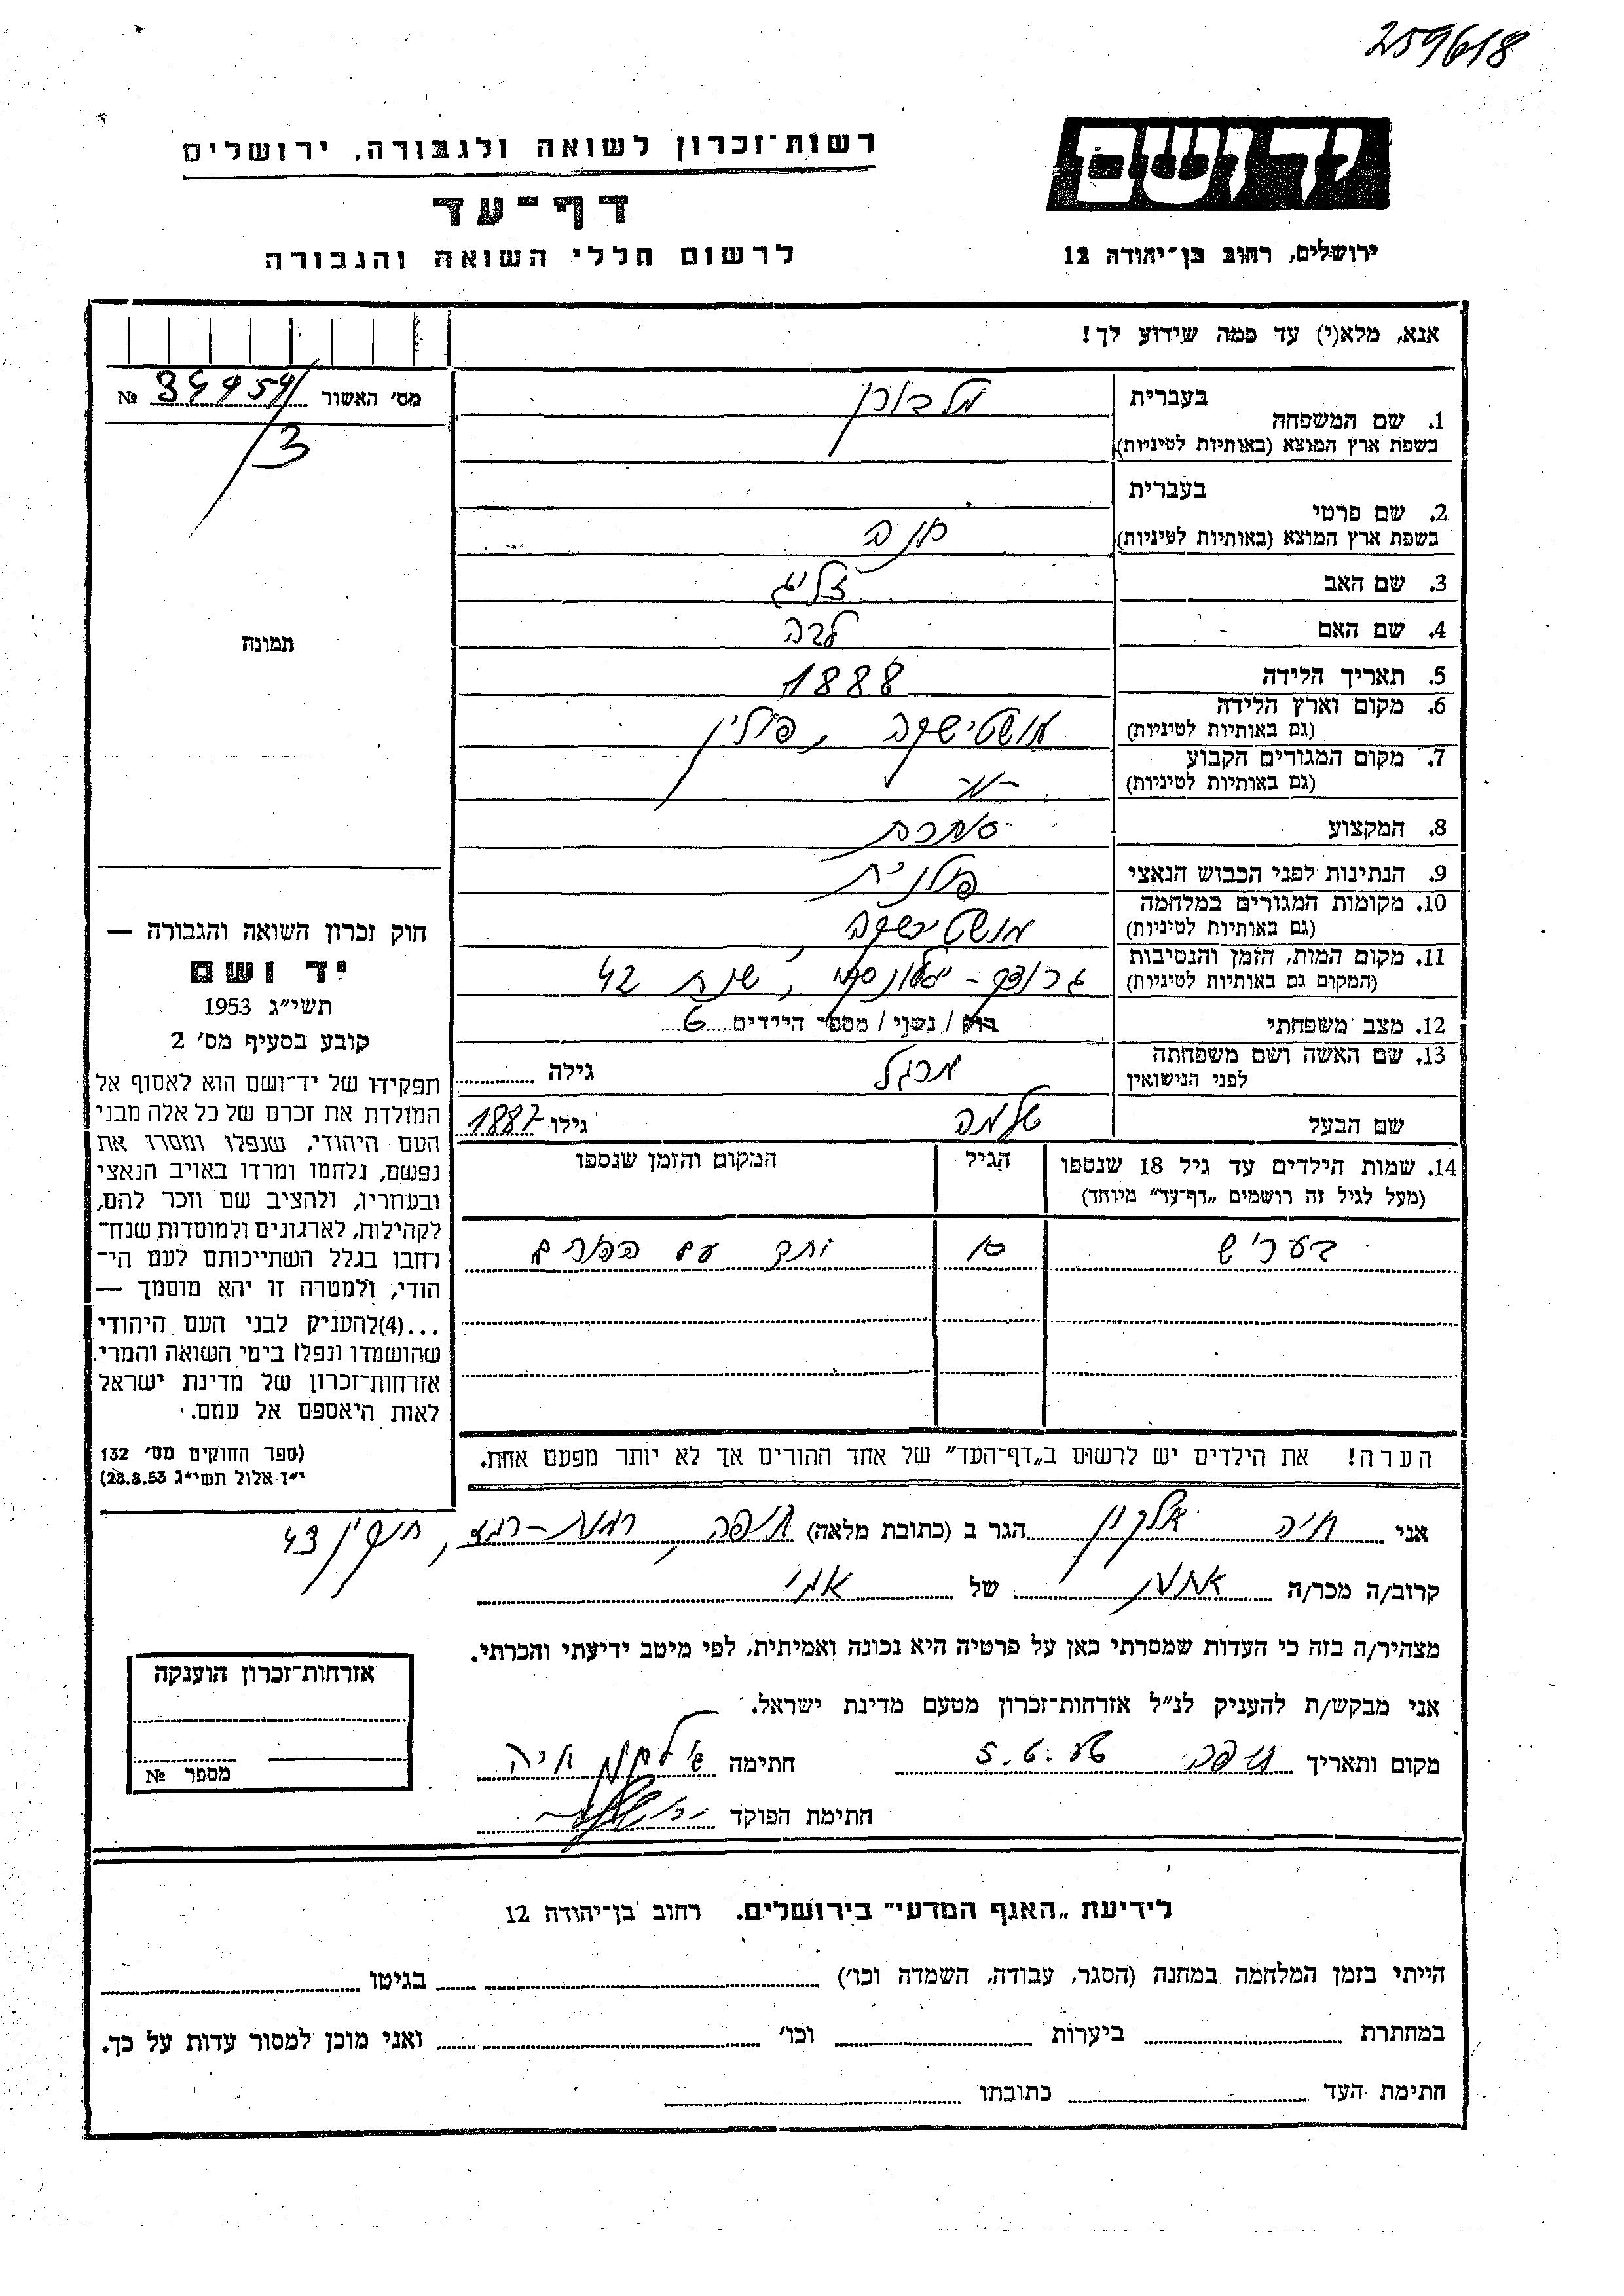 259618
יד ושם
רשות־זכרון לשואה ולגבורה, ירושלים
דף־עד
לרשום חללי השואה והגבורה
ירושלים, רחוב בן־יהודה 12
אנא, מלא(י) עד כמה שידוע לך!
מס׳ האשור № 34959/
/3
תמונה
חוק זכרון השואה והגבורה —
יד ושם
תשי״ג 1953
קובע בסעיף מס׳ 2
תפקידו של יד־ושם הוא לאסוף אל
המולדת את זכרם של כל אלה מבני
העם היהודי, שנפלו ומסרו את
נפשם, נלחמו ומרדו באויב הנאצי
ובעוזריו, ולהציב שם וזכר להם,
לקהילות, לארגונים ולמוסדות שנח־
רחבו בגלל השתייכותם לעם הי־
הודי, ולמטרה זו יהא מוסמך —
...(4)להעניק לבני העם היהודי
שהושמדו ונפלו בימי השואה והמרי.
אזרחות־זכרון של מדינת ישראל
לאות היאספם אל עמם.
(ספר החוקים מס׳ 132
י״ז אלול תשי״ג 28.8.53)
1. שם המשפחה
בעברית מלבורן
בשפת ארץ המוצא (באותיות לטיניות)
2. שם פרטי
בעברית
בשפת ארץ המוצא (באותיות לטיניות) חנה
3. שם האב זליג
4. שם האם
5. תאריך הלידה 1888
6. מקום וארץ הלידה
(גם באותיות לטיניות) , פולין
7. מקום המגורים הקבוע
(גם באותיות לטיניות)
8. המקצוע סוחרת
9. הנתינות לפני הכבוש הנאצי פולנית
10. מקומות המגורים במלחמה
(גם באותיות לטיניות)
11. מקום המות, הזמן והנסיבות
(המקום גם באותיות לטיניות) , שנת 42
12. מצב משפחתי רוק / נשוי / מספר הילדים 6
13. שם האשה ושם משפחתה
לפני הנישואין גילה
שם הבעל שלמה גילו 1887
14. שמות הילדים עד גיל 18 שנספו
(מעל לגיל זה רושמים „דף־עד״ מיוחד)
הגיל
המקום והזמן שנספו
בעריש עם ההורים
הערה! את הילדים יש לרשום ב„דף־העד״ של אחד ההורים אך לא יותר מפעם אחת.
אני חיה אלקון הגר ב (כתובת מלאה) חיפה, רמות־רמז, 43
קרוב/ה מכר/ה של אמי
מצהיר/ה בזה כי העדות שמסרתי כאן על פרטיה היא נכונה ואמיתית, לפי מיטב ידיעתי והכרתי.
אני מבקש/ת להעניק לנ״ל אזרחות־זכרון מטעם מדינת ישראל.
מקום ותאריך חיפה 5.6. חתימה אלקון חיה
חתימת הפוקד
אזרחות־זכרון הוענקה
מספר №
לידיעת „האגף המדעי״ בירושלים. רחוב בן־יהודה 12
הייתי בזמן המלחמה במחנה (הסגר, עבודה, השמדה וכו׳) בגיטו
במחתרת ביערות וכו׳ ואני מוכן למסור עדות על כך.
חתימת העד כתובתו